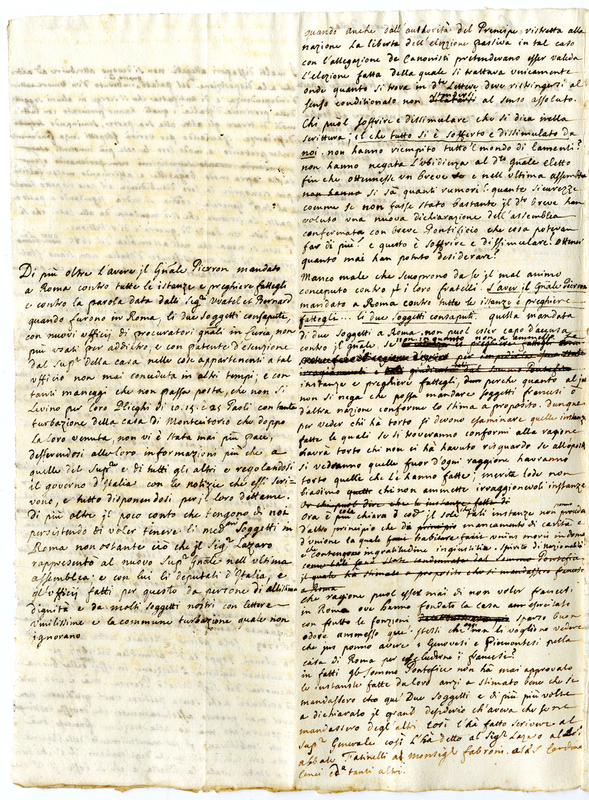 Di più oltre l'avere il Gnãle Pierron mandato
a Roma contro tutte le istanze e preghiere fattegli
e contro la parola data dalli Sigri Watel et Bernard
quando furono in Roma, li due Soggetti consaputi,
con nuovi ufficij di procuratori gnãli in Curia, non
più usati per addietro, e con patente d'esenzione
dal Supre della casa nelle cose appartenenti a tal
ufficio non mai conceduta in altri tempi; e con
tanti maneggi che non passa posta, che non si
levino per loro Plichi di 10. 15. e 25 Paoli con tanta
turbazione della casa di Montecitorio che doppo
la loro venuta, non vi è stata mai più pace,
defferendosi alle loro informazioni più che a
quelle del Supre e di tutti gli altri e regolandosi
il governo d'Italia con le notizie che essi scri-
vono, e tutto disponendosi per il loro dettame.
Di più oltre il poco conto che tengono di noi
persistendo di voler tenere li medmi Soggetti in
Roma non ostante ciò che il Sigr Lazaro
rappresentò al nuovo Supre Gnãle nell'ultima
assemblea e con lui li deputati d'Italia, e
gl'ufficij fatti per questo da persone di altissima
dignità e da molti soggetti nostri con lettere
umilissime e la commune turbazione quale non
ignorano
quando anche dall'authorità del Principe ristretta alla
nazione la libertà dell'elezione passiva in tal caso
con l'allegazione de Canonisti pretenderano esser valida
l'elezione fatta della quale si trattava unicamente
onde quanto si trova in dte Lettere deve ristringersi al
senso conditionale non al senso assoluto.
Chi può soffrire e dissimulare che si dica nella
scrittura; e che tutto si è sofferto e dissimulato da
noi, non hanno riempito tutto il mondo di lamenti?
non hanno negata l'ubidienza al dto Gnãle eletto
fin che ottennesse un breve e nell'ultima assemblea
non hanno si sà quanti rumori? quante sicurezze
comme se non fosse stato bastante il dto breve han
voluto una nuova dichiarazione dell'assemblea
confermata con breve Pontificio che cosa potevan
far di più? e questo è soffrire e dissimulare ottener
quanto mai han potuto desiderare?
Manco male che scuoprono da se il mal animo
conceputo contro i loro fratelli. L'aver il Gnãle Pierron
mandato a Roma contro tutte le istanze e preghiere
fattegli... li due Soggetti consaputi. quella mandata
di due soggetti a Roma, non può esser capo d'accusa
contro il gnãle se non in quanto non ammesse
instanze e preghiere fattegli, perche quanto al jus
non si nega che possa mandare soggetti francesi è
d'altra nazione conforme lo stima a proposito. Dunque
per veder chi ha torto si devono esaminare quelle instanze
fatte le quali se si troveranno conformi alla ragione
havrà torto chi non ci ha havuto riguardo se all'opposto
si vedranno quelle fuor d'ogni raggione havranno
torto quelle che le hanno fatte; merita lode non
biasimo chi non ammette irraggionevoli instanze
Ora è cosa chiara che tali instanze non
dalla principio che da mancamento di carità e
d'unione la quale
e contengono ingratitudine ingiustitia, spirito di nazionalità
il quale ha stimato a proposito che si mandassero francesi
a Roma
che ragione puol esser mai di non voler francesi
in Roma ove hanno fondato la casa esercitato
con frutto le fonzioni sparso buon
odore ammesso que' stessi che non li vogliono vedere
che jus ponno avere i Genovesi e Piemontesi nella
casa di Roma per escludere i francesi?
in fatti gl Sommo Pontefice non hà mai approvato
le instanze fatte da loro anzi a stimato bene che se
mandassero que' Due Soggetti e di più più volte
a dichiarato il grand desiderio ch'aveva che se ne
mandassero degl'altri così l'ha fatto scrivere al
Supr Generale così l'ha detto al Sigr Lazaro al
abbate Tatinelli a monsigr fabroni. alas Cardina
lenci ed a tanti altri.